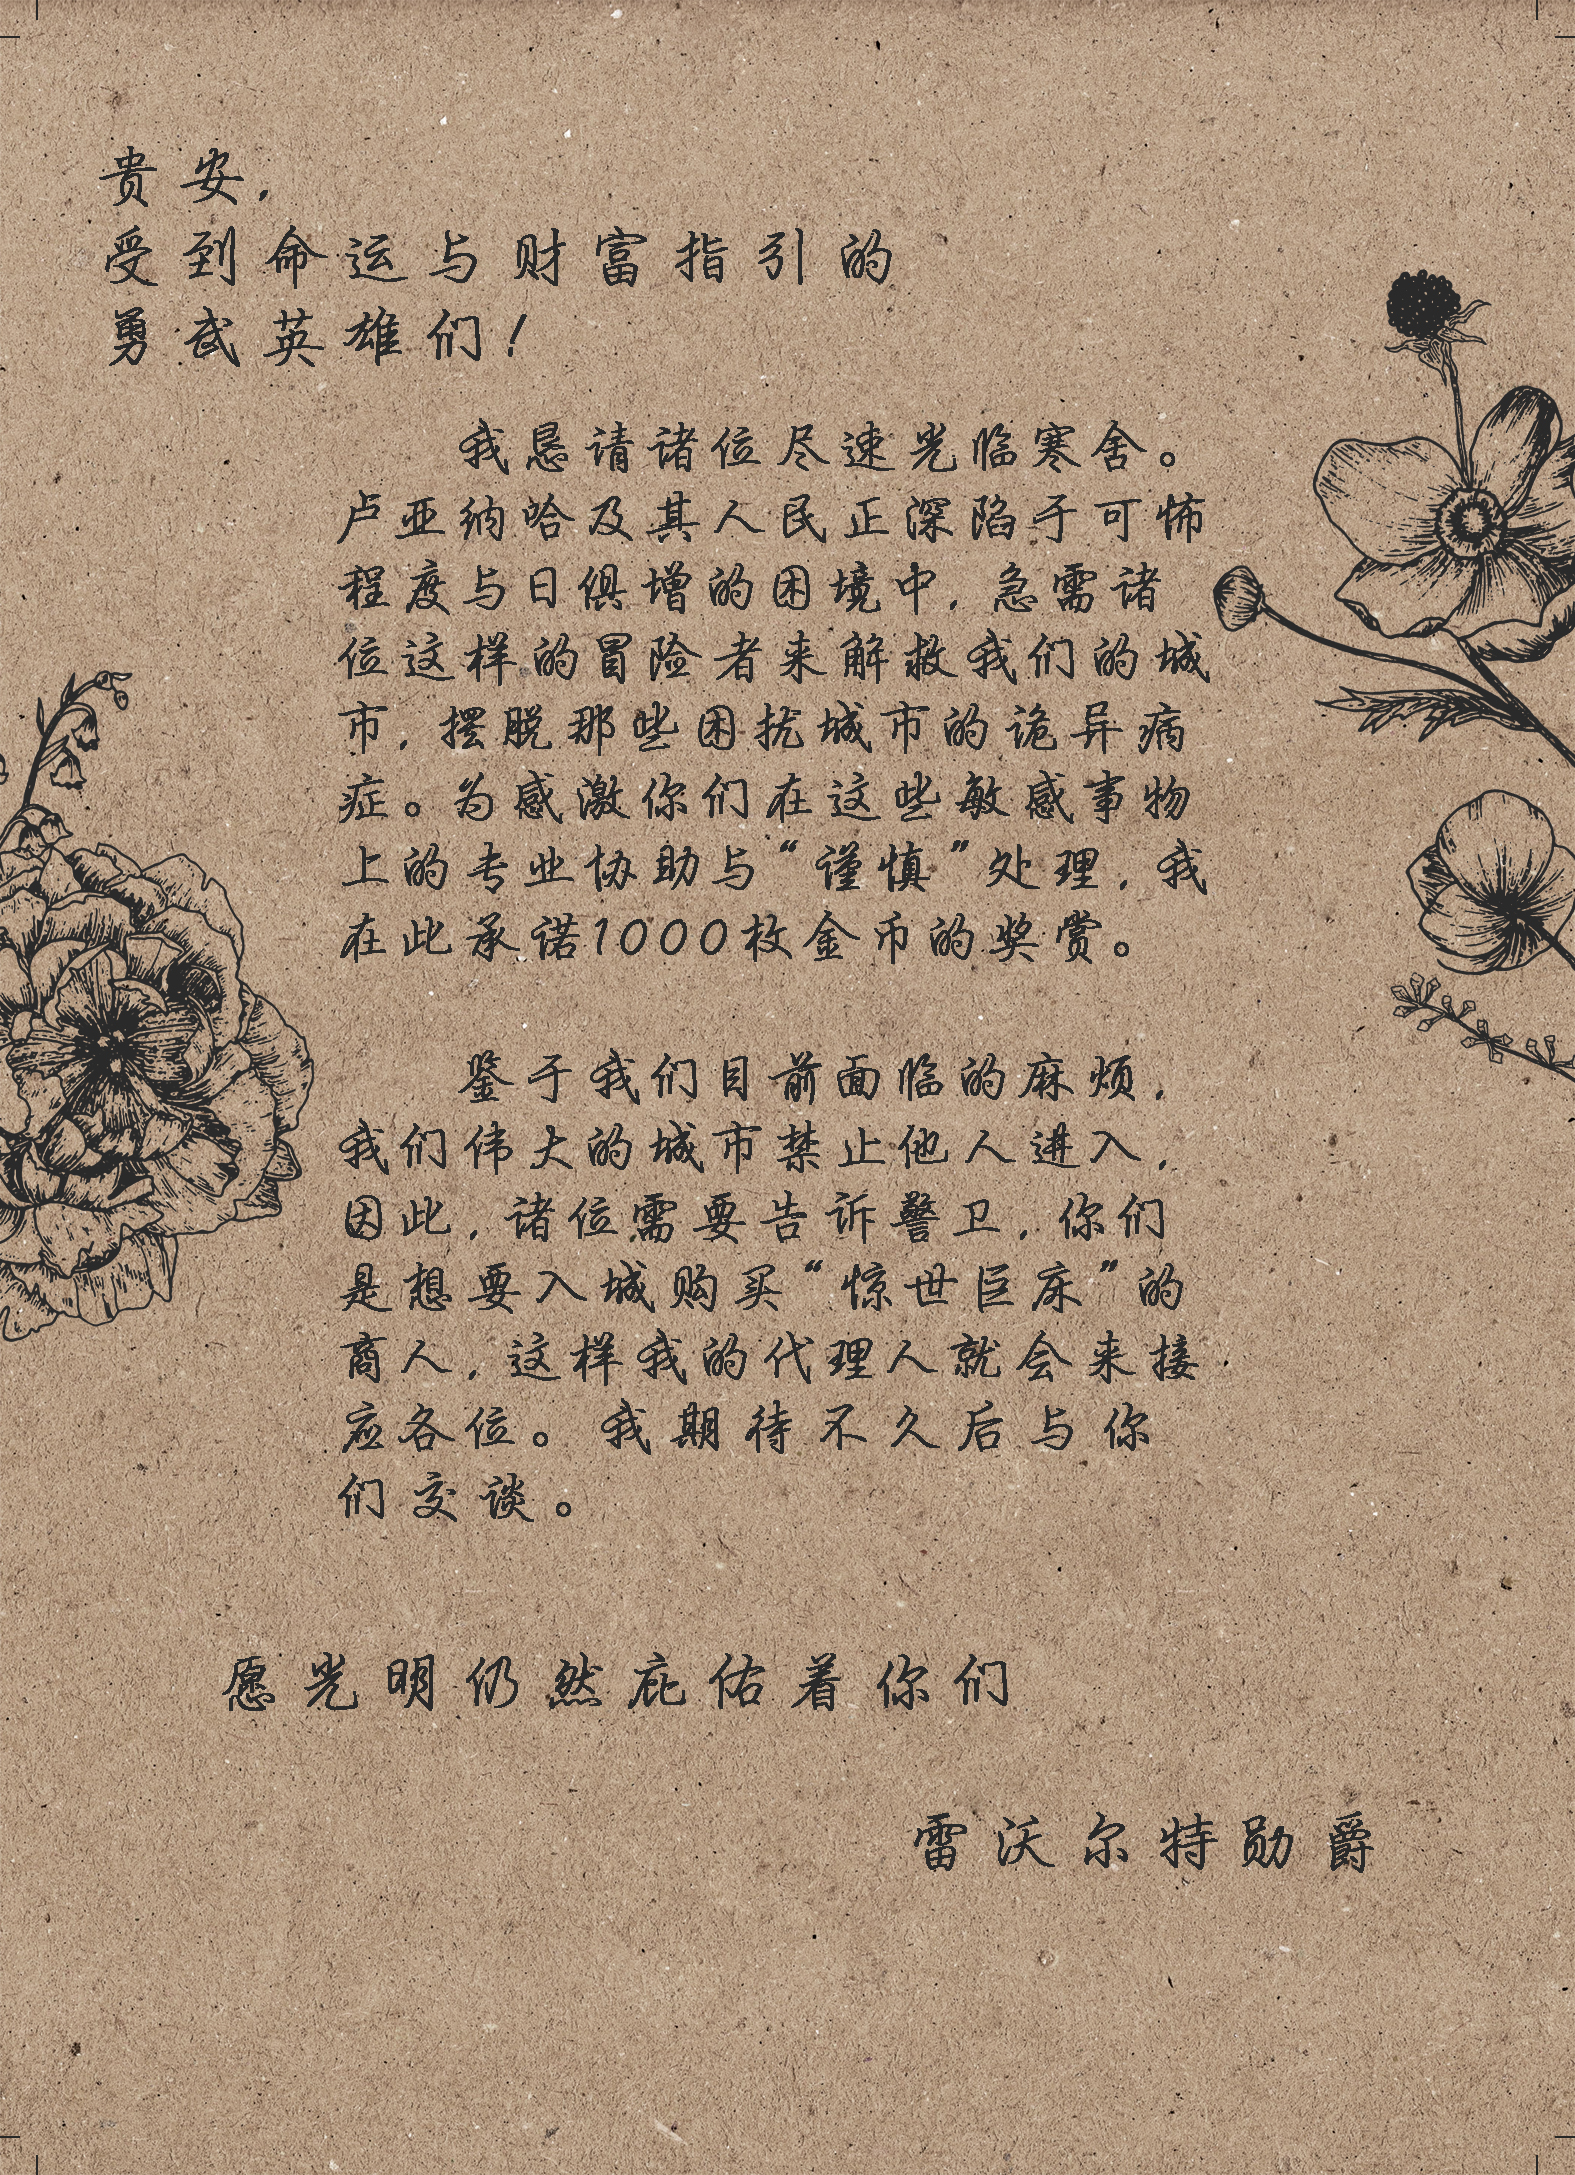 贵安，
受到命运与财富指引的
勇武英雄们！
我恳请诸位尽速光临寒舍。
卢亚纳哈及其人民正深陷于可怖
程度与日俱增的困境中，急需诸
位这样的冒险者来解救我们的城
市，摆脱那些困扰城市的诡异病
症。为感激你们在这些敏感事物
上的专业协助与“谨慎”处理，我
在此承诺1000枚金币的奖赏。
鉴于我们目前面临的麻烦，
我们伟大的城市禁止他人进入，
因此，诸位需要告诉警卫，你们
是想要入城购买“惊世巨床”的
商人，这样我的代理人就会来接
应各位。我期待不久后与你
们交谈。
愿光明仍然庇佑着你们
雷沃尔特勋爵